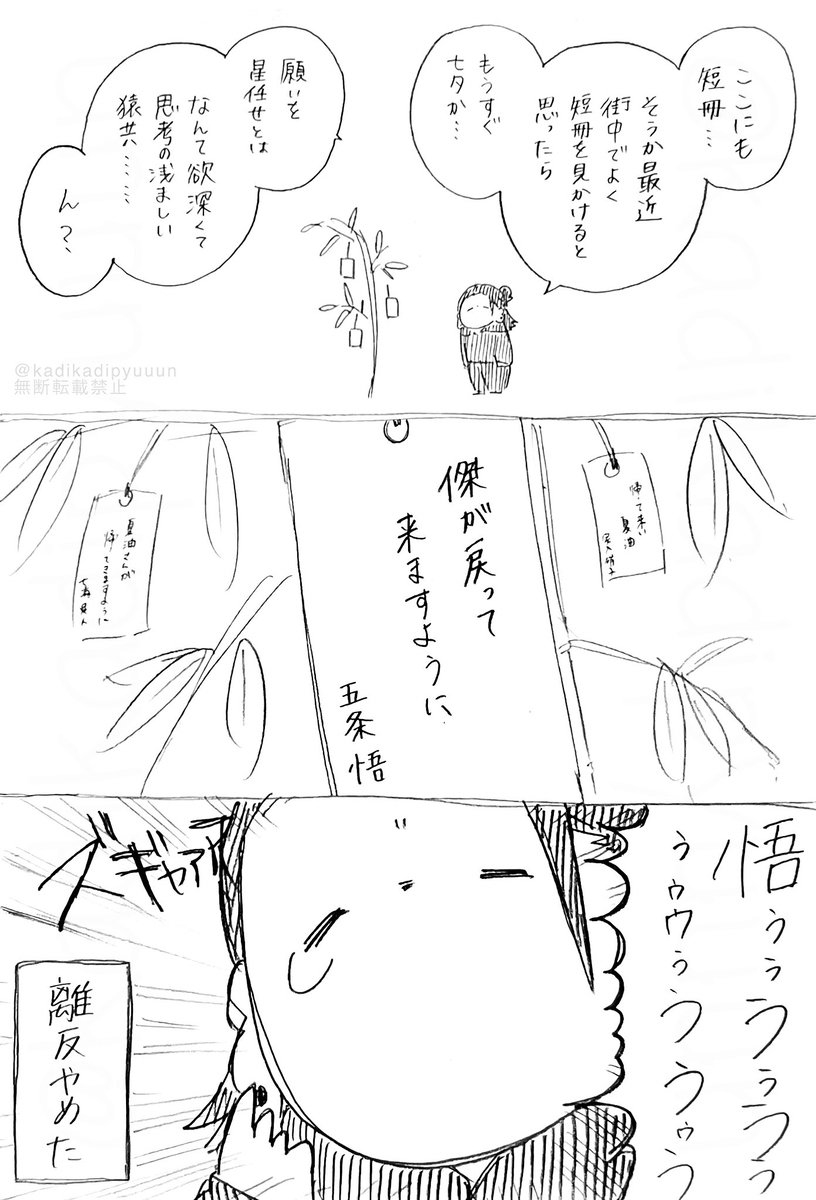 ここにも
短冊…
そうか最近
街中でよく
短冊を見かけると
思ったら
もうすぐ
七夕か…
願いを
星任せとは
なんて欲深くて
思考の浅ましい
猿共……
ん？
@kadikadipyuuun
無断転載禁止
帰って来い
夏油
傑が戻って
来ますように
五条悟
夏油さんが
帰ってきますように
悟ぅぅううぅうう
ぅゥウぅううゥぅ
ズギャアァ
離反やめた